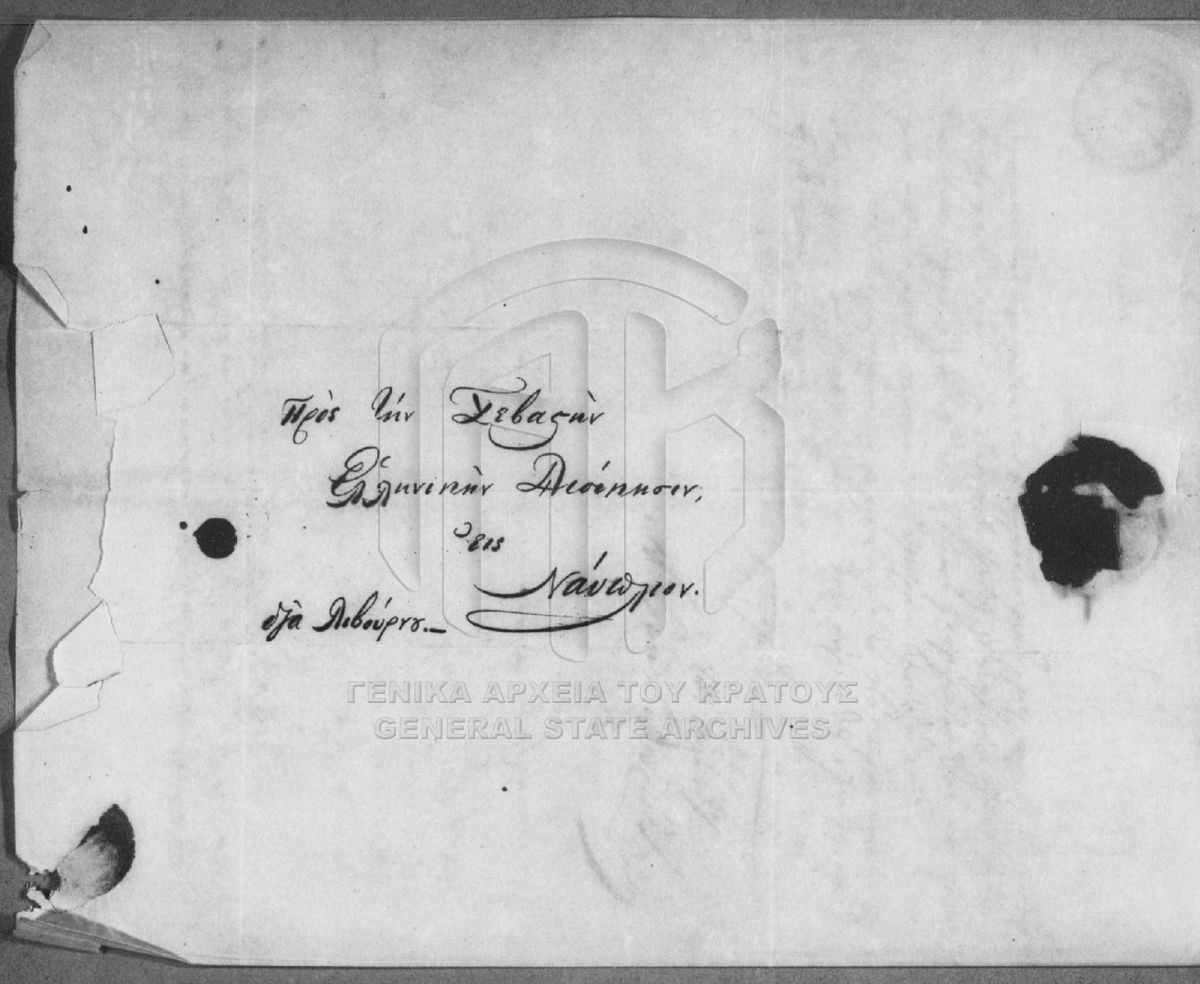 Πρὸς τήν Σεβαςὴν
Ἑλληνικὴν Διοίκησιν,
εἰς
Ναύπλιον.
διὰ Λιβούρνȣ._
ΓΕΝΙΚΑ ΑΡΧΕΙΑ ΤΟΥ ΚΡΑΤΟΥΣ
GENERAL STATE ARCHIVES